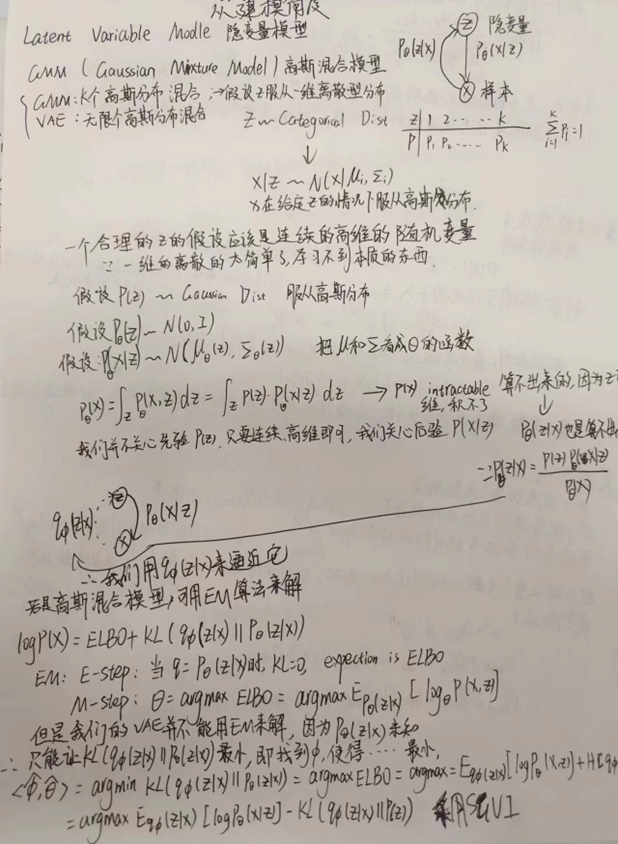 从建模角度
Latent Variable Modle 隐变量模型
GMM ( Gaussian Mixture Model ) 高斯混合模型
GMM: K个高斯分布混合 :→假设Z服从一维离散型分布
VAE : 无限个高斯分布混合 Z ~ Categorical Dist
Z 隐变量
Pθ(Z|X) Pθ(X|Z)
X 样本
Z 1 2 ····· K
P P₁ P₂ ····· Pk
∑ᵢ₌₁ᴷ Pi=1
↓
X|Z ~ N(X|μi,Σi)
X在给定Z的情况下服从高斯分布.
一个合理的Z的假设应该是连续的高维的随机变量
∵一维的离散的太简单了,学习不到本质的东西.
假设 P(Z) ~ Gaussian Dist 服从高斯分布
假设Pθ(Z) ~ N(0, I)
假设:Pθ(X|Z) ~ N(μθ(Z), Σθ(Z)) 把μ和Σ看成θ的函数
Pθ(X)=∫z Pθ(X,Z)dZ = ∫z P(Z)·Pθ(X|Z)·dZ → P(X) intractable 算不出来的,因为Z
维,积不了 ↓
我们并不关心先验P(Z),只要连续、高维即可,我们关心后验P(X|Z) Pθ(Z|X)也是算不出
∵Pθ(Z|X) = P(Z)Pθ(X|Z) / Pθ(X)
qφ(Z|X): Z X Pθ(X|Z)
∴我们用qφ(Z|X)来逼近它
若是高斯混合模型,可用EM算法来解
log P(X) = ELBO + KL( qφ(Z|X) || Pθ(Z|X))
EM: E-step: 当 q = Pθ(Z|X)时, KL=0, expection is ELBO
M-step: θ=argmax ELBO = argmax E Pθ(Z|X) [ logθ P(X,Z)]
但是我们的VAE并不能用EM来解,因为Pθ(Z|X)未知
∴只能让KL(qφ(Z|X)||Pθ(Z|X))最小,即找到φ,使得····最小,
<φ̂,θ̂> = argmin KL( qφ(Z|X) || Pθ(Z|X)) = argmax ELBO = argmax= E qφ(Z|X) [ log Pθ(X,Z)] + H[qφ
= argmax E qφ(Z|X) [logPθ(X|Z)] - KL( qφ(Z|X)||P(Z))